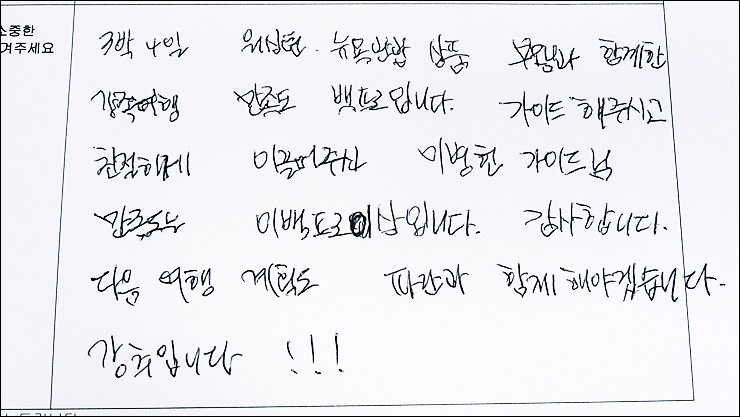 소중한
겨주세요
3박 4일 워싱턴. 뉴욕 방방 상품 부모님과 함께한
가족여행 만족도 백프로입니다. 가이드 해주시고
친절하게 이끌어주신 이병헌 가이드님
만족도는 이백프로이상입니다. 감사합니다.
다음 여행 계획도 파란과 함께 해야겠습니다.
강추입니다 !!!